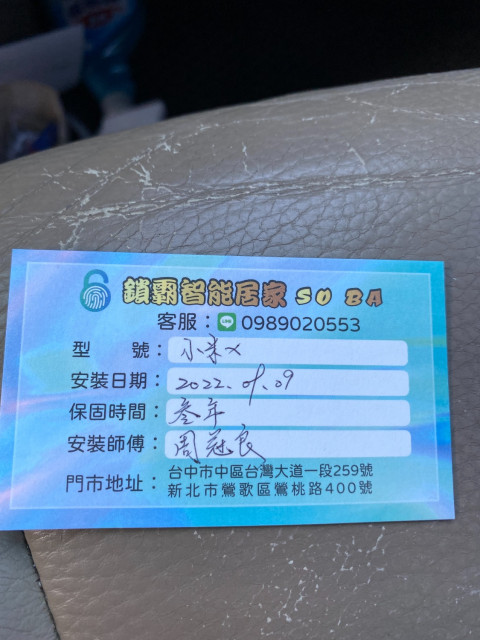 鎖霸智能居家 SO BA
客服：LINE 0989020553
型 號：小米X
安裝日期：2022.01.09
保固時間：叁年
安裝師傅：周冠良
門市地址：台中市中區台灣大道一段259號
新北市鶯歌區鶯桃路400號